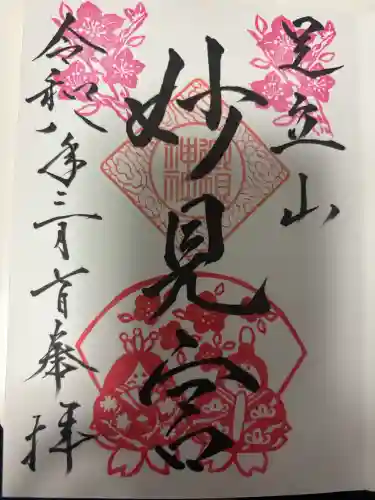 足立山
妙見宮
令和八年三月一日奉拝